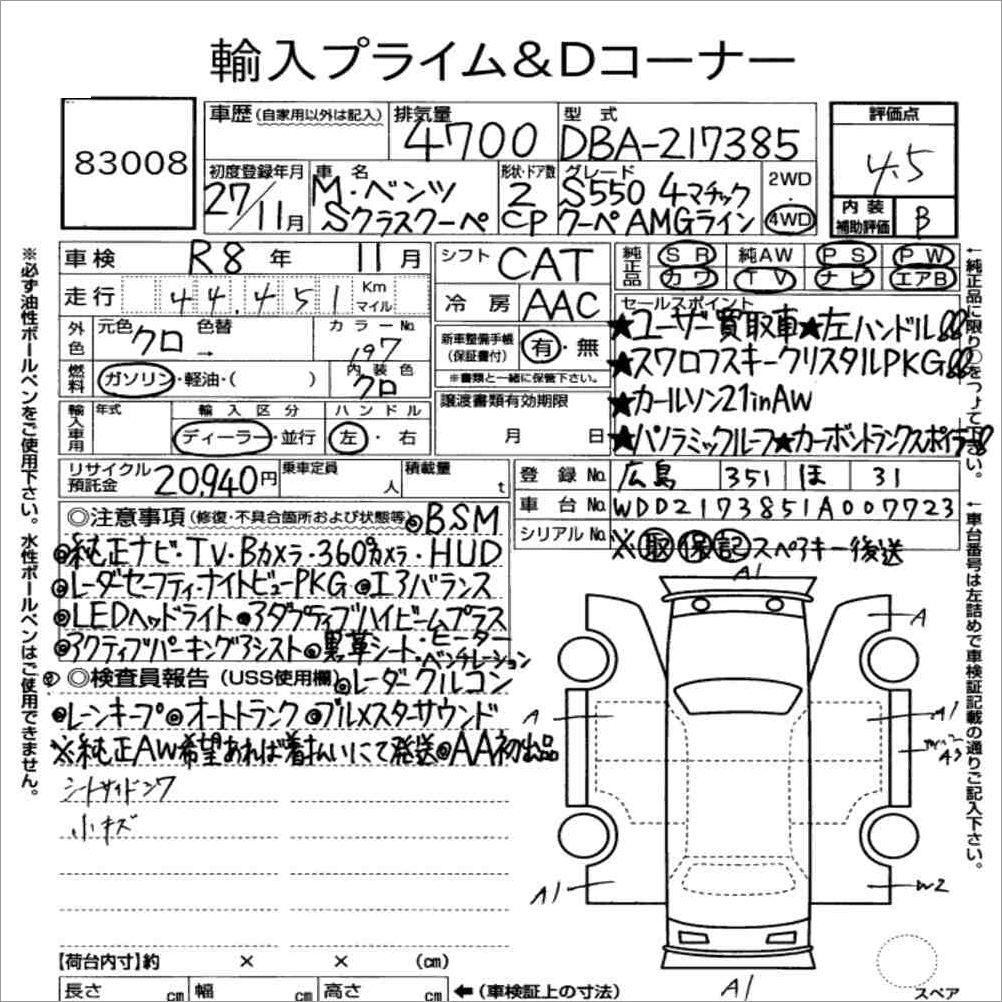 輸入プライム&Dコーナー
83008
車歴(自家用以外は記入)
排気量
4700
型式
DBA-217385
評価点
4.5
内装補助評価
B
初度登録年月
27/11月
車名
M・ベンツ
Sクラスクーペ
形状・ドア数
2
CP
グレード
S550 4マチック
クーペ AMGライン
2WD
4WD
車検 R8年 11月
シフト CAT
走行 44,451 Km マイル
冷房 AAC
純正品 SR 純AW PS PW
カワ TV ナビ エアB
外色 元色 クロ 色替 → カラーNo. 197
燃料 ガソリン・軽油・( ) 内装色 クロ
新車整備手帳(保証書付) 有・無
※書類と一緒に保管下さい。
譲渡書類有効期限
月 日
セールスポイント
★ユーザー買取車★左ハンドル
★スワロフスキークリスタルPKG
★カールソン21inAW
★パノラミックルーフ★カーボントランクスポイラー
輸入車用 年式 輸入区分 ディーラー・並行 ハンドル 左・右
リサイクル預託金 20,940円 乗車定員 人 積載量 t
登録No. 広島 351 ほ 31
車台No. WDD2173851A007723
シリアルNo. ※取保記スペアキー後送
◎注意事項(修復・不具合箇所および状態等)◎BSM
◎純正ナビ・TV・Bカメラ・360°カメラ・HUD
◎レーダーセーフティ・ナイトビューPKG ◎エアバランス
◎LEDヘッドライト◎アダプティブハイビームプラス
◎アクティブパーキングアシスト◎黒革シート・ヒーター・ベンチレーション
◎検査員報告(USS使用欄)◎レーダークルコン
◎レーンキープ◎オートトランク◎ブルメスターサウンド
※純正AW希望あれば着払いにて発送◎AA初出品
シートサイドシワ
小キズ
A1
A
A
A1
A3
A1
W2
A1
スペア
【荷台内寸】約 × × (cm)
長さ cm 幅 cm 高さ cm ←(車検証上の寸法)
※必ず油性ボールペンをご使用下さい。水性ボールペンはご使用できません。
←純正品に限り○をつけて下さい。
←車台番号は左詰めで車検証記載の通りご記入下さい。